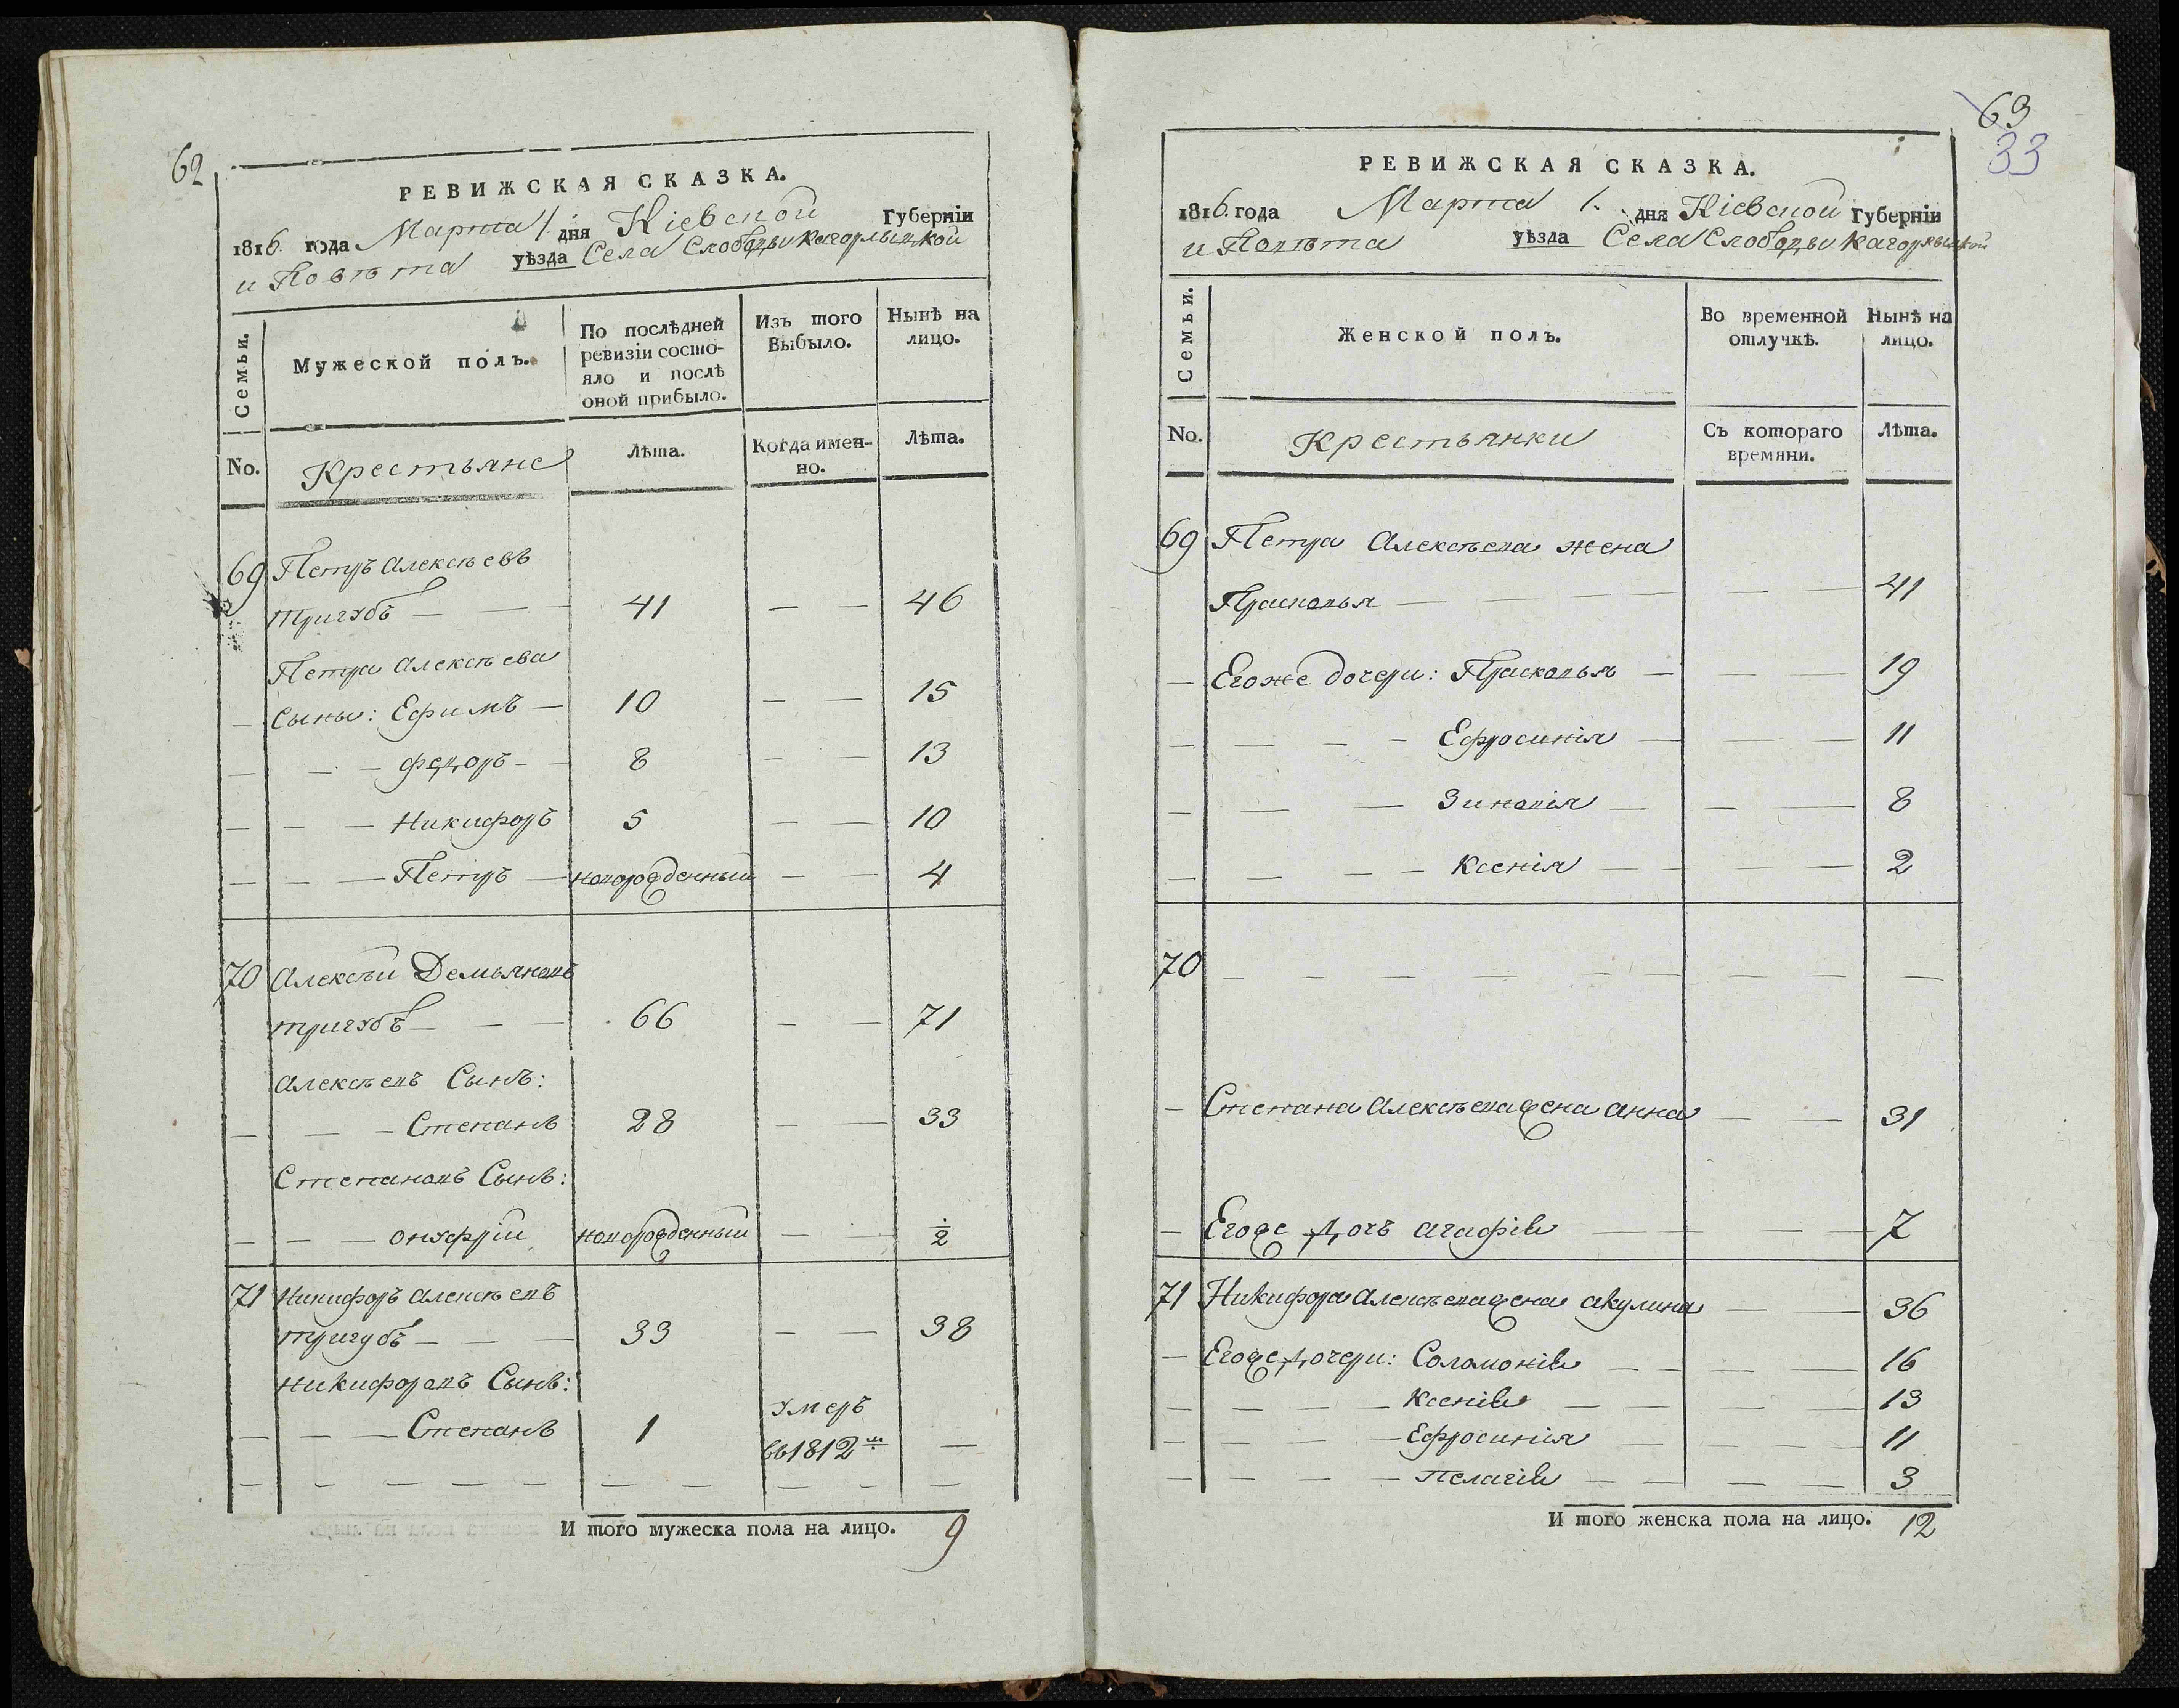 62
РЕВИЖСКАЯ СКАЗКА.
1816. года Марта 1. дня Кіевской Губерніи
и Повѣта уѣзда Села Слободы Кагорлыцкой
Семьи.
Мужеской полъ.
По послѣдней
ревизіи состо-
яло и послѣ
оной прибыло.
Изъ того
Выбыло.
Нынѣ на
лицо.
No.
Крестьяне
Лѣта.
Когда имен-
но.
Лѣта.
69 Петръ Алексѣевъ
Тригубъ — — 41 — — 46
Петра Алексѣева
— Сыны: Ефимъ — 10 — — 15
— — — Федоръ — — 8 — — 13
— — — Никифоръ 5 — — 10
— — — Петръ — новорожденный — — 4
70 Алексѣй Демьяновъ
Тригубъ — — — 66 — — 71
Алексѣевъ Сынъ:
— — — Степанъ 28 — — 33
Степановъ Сынъ:
— — — Онуфрій новорожденный — — 1/2
71 Никифоръ Алексѣевъ
Тригубъ — — — 33 — — 38
Никифоровъ Сынъ:
— — — Степанъ 1 Умеръ
въ 1812 м —
— — — — — — — — — — —
И того мужеска пола на лицо. 9
63
33
РЕВИЖСКАЯ СКАЗКА.
1816. года Марта 1. дня Кіевской Губерніи
и Повѣта уѣзда Села Слободы Кагорлыцкой
Семьи.
Женской полъ.
Во временной
отлучкѣ.
Нынѣ на
лицо.
No.
Крестьянки
Съ котораго
времяни.
Лѣта.
69 Петра Алексѣева жена
Прасковья — — — — — 41
— Егоже дочери: Прасковья — — — 19
— — — — Ефросинія — — — 11
— — — Зиновія — — — 8
— — — — Ксенія — — — — 2
70 — — — — — — — — — —
— Степана Алексѣева жена Анна — — 31
— Егоже дочь Агафія — — — 7
71 Никифора Алексѣева жена Акулина — — 36
— Егоже дочери: Соломонія — — — — 16
— — — — Ксенія — — — — 13
— — — — Ефросинія — — — — 11
— — — — Пелагія — — — — 3
И того женска пола на лицо. 12